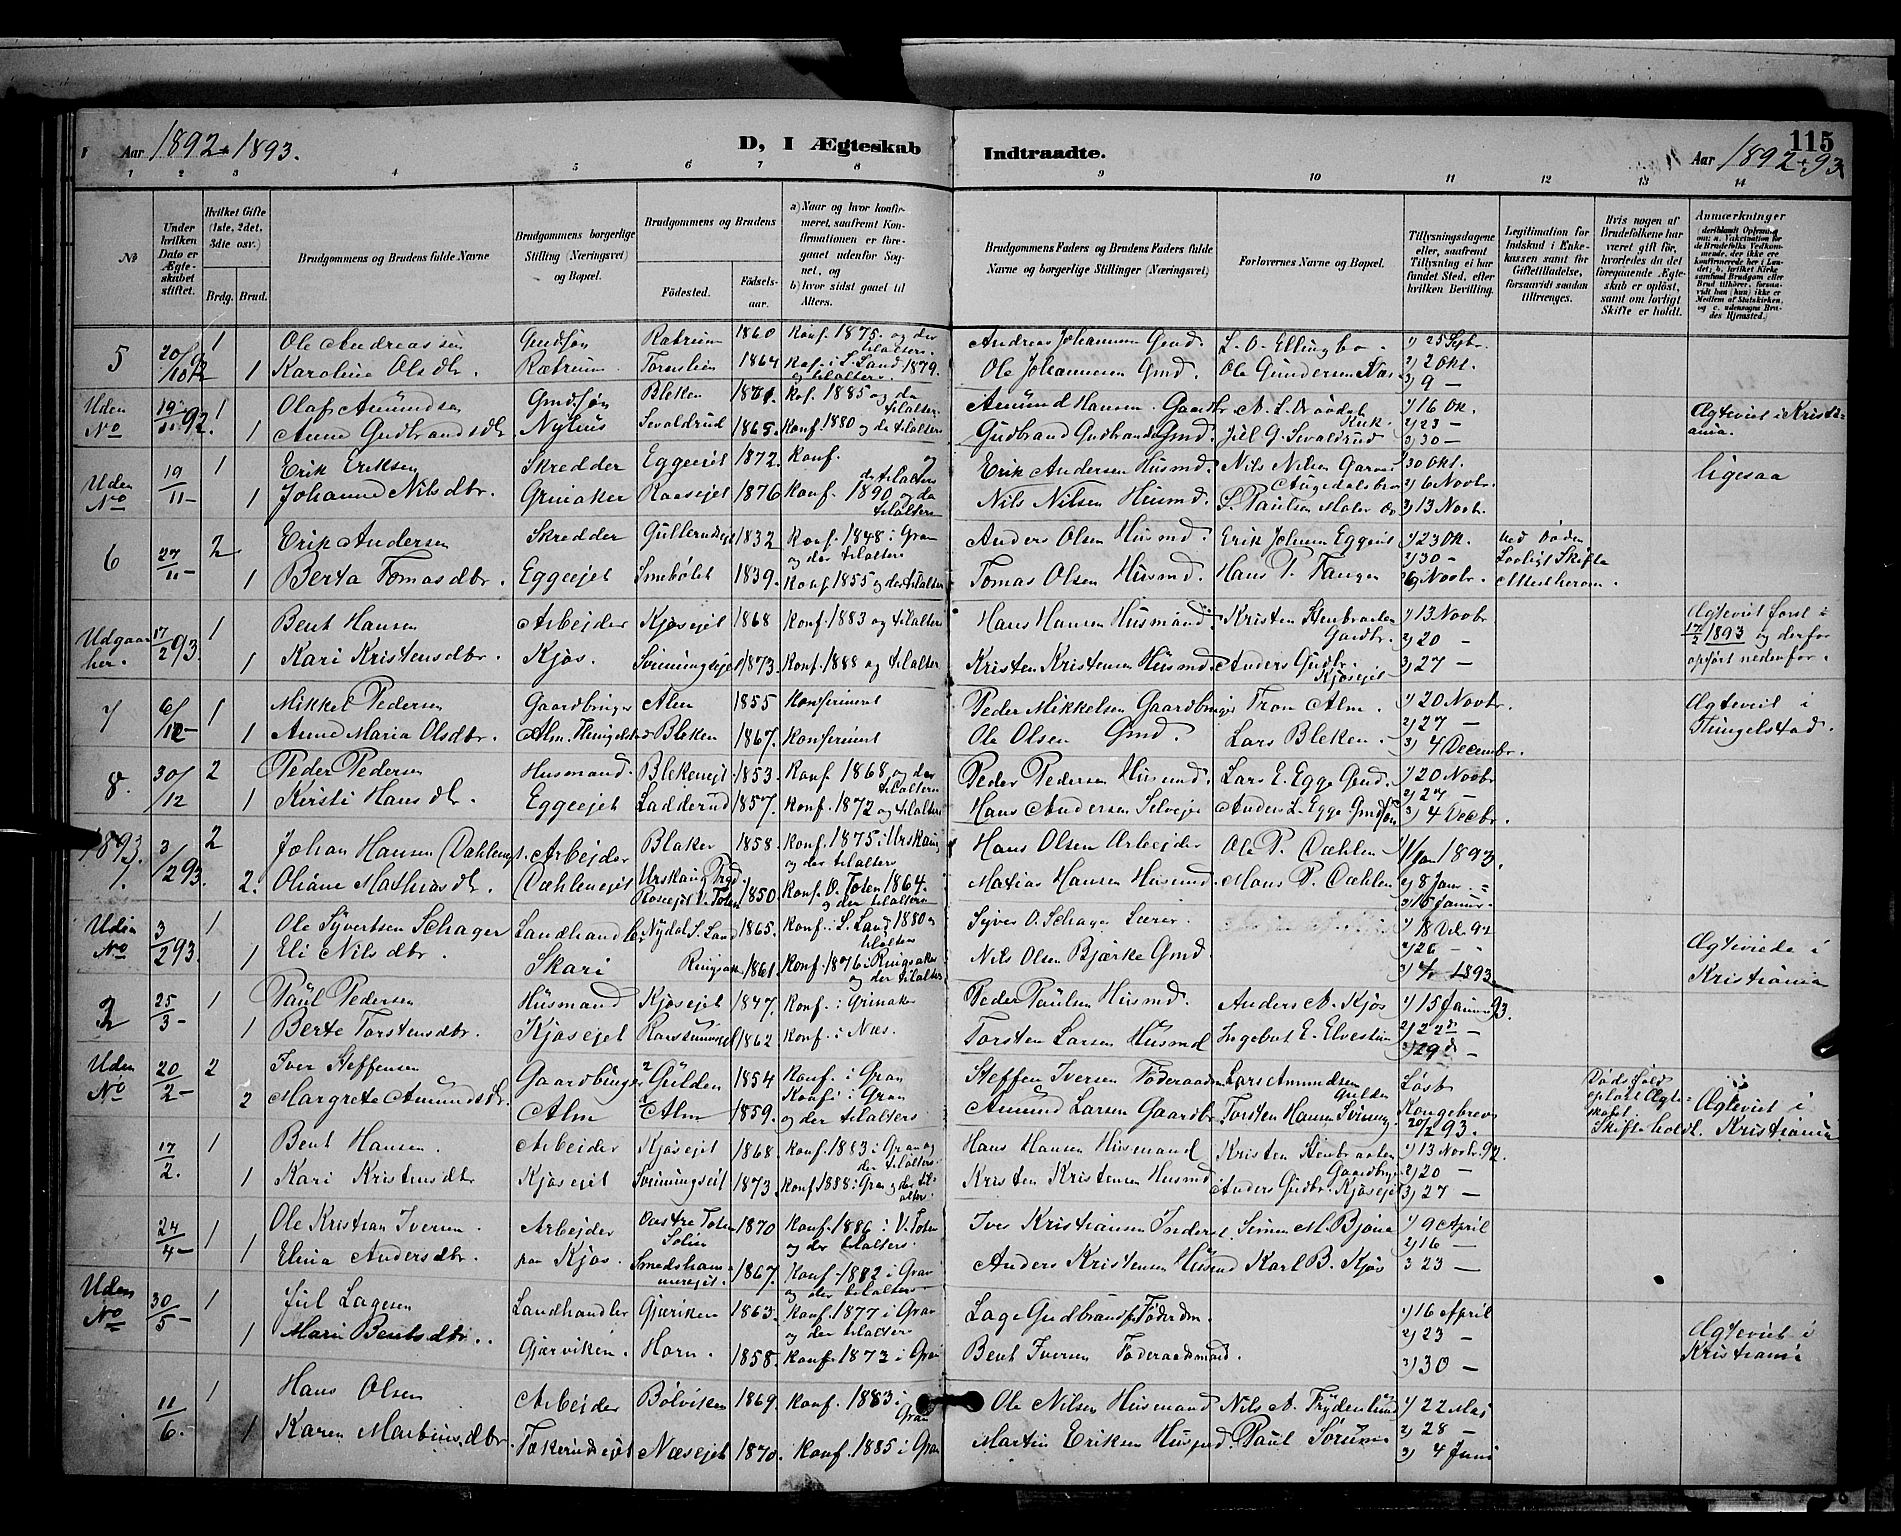 Aar 1892 + 1893.
D, I Ægteskab
Indtraadte.
115
Aar 1892 + 93
1 2 3 4 5 6 7 8 9 10 11 12 13 14
№
Under hvilken Dato er Ægteskabet stiftet.
Hvilket Gifte (1ste, 2det, 3die osv.)
Brdg. Brud.
Brudgommens og Brudens fulde Navne
Brudgommens borgerlige Stilling (Næringsvei) og Bopæl.
Brudgommens og Brudens
Fødested.
Fødselsaar.
a) Naar og hvor konfirmeret, saafremt Konfirmationen er foregaaet udenfor Sognet, og
b) hvor sidst gaaet til Alters.
Brudgommens Faders og Brudens Faders fulde Navne og borgerlige Stillinger (Næringsvei)
Forlovernes Navne og Bopæl.
Tillysningsdagene eller, saafremt Tillysning ei har fundet Sted, efter hvilken Bevilling.
Legitimation for Indskud i Enkekassen samt for Giftetilladelse, forsaavidt saadan tiltrænges.
Hvis nogen af Brudefolkene har været gift før, hvorledes da det foregaaende Ægteskab er opløst, samt om lovligt Skifte er holdt.
Anmærkninger
5 20/10 92 1 Ole Andreassen Gmdsøn Røtrum 1860 Konf. 1875. og der tilalters. Andreas Johannesen Gmd. L. O. Ellingbo 1) 25 Septbr.
1 Karoline Olsdtr. Røtrum. Tornslien 1864 Kof. i S. Land 1879. og tilalters. Ole Johannesen Gmd. Ole Gundersen Næs 2) 2 Okt. 3) 9 —
Uden No 19/11 92. 1 Olaf Amundsen Gmdsøn Bleken 1861. Kof. 1885 og da tilalters. Amund Hansen Gaardbr 1) 16 Ok. Ægteviet i Kristiania.
1 Anne Gudbrandsdtr. Nyhus Sevaldrud 1865 Konf 1880 og da tilalters Gudbrand Gudbrandsen Gmd. Jul G. Sevaldrud 2) 23 — 3) 30 —
Uden No 19/11 — 1 Erik Eriksen Skredder Eggeejet 1872. Konf. og da tilalters Erik Andersen Husmd. Nils Nilsen 1) 30 Okt. ligesaa
1 Johanne Nilsdtr. Grinaker Raasejet 1876 Konf. 1890 og da tilalters Nils Nilsen Husmd. L. Paulsen Maler 2) 6 Novbr. 3) 13 Novbr.
6 27/11 — 2 Erik Andersen Skredder Gullerudejet 1832 Konf. 1848 i Gran og der tilalters Anders Olsen Husmd. Erik Johnsen Eggeeiet 1) 23 Ok. ved Døden Lovligt Skifte
1 Berta Tomasdtr. Eggeejet Smebølet 1839. Konf 1855 og der tilalters Tomas Olsen Husmd. Hans P. Tangen 2) 30 — 3) 6 Novbr.
Udgaar her. 17/2 93. 1 Bent Hansen Arbejder Kjøsejet 1868 Konf. 1883 og tilalters Hans Hansen Husmand. Kristen Stenbraaten Gaardbr. 1) 13 Novbr 2) 20 — Ægteviet først i 17/2 1893 og derfor opført nedenfor.
1 Kari Kristensdtr. Kjøs. Svinningsejet 1873. Konf. 1888 og tilalters Kristen Kristensen Husmd. Anders Gudbr. Kjøsejet 3) 27 —
7 6/12 — 1 Mikkel Pedersen Gaardbruger Alm 1855 Konfirmeret Peder Mikkelsen Gaardbruger Tron Alm. 1) 20 Novbr. Ægteviet i Tingelstad.
1 Anne Maria Olsdtr. Alm. Bleken 1867. Konfirmeret Ole Olsen Gmd. Lars Bleken. 2) 27 — 3) 4 Decembr.
8. 30/12 2 Peder Pedersen Husmand. Blekenejet 1853. Konf 1868 og der tilalters Peder Pedersen Husmd. Lars E. Egge Gmd. 1) 20 Novbr
1 Kirsti Hansdtr. Eggeejet Ladderud 1857. Konf. 1872 og tilalters Hans Andersen Selvejer Anders L. Egge Gmdsøn 2) 27 — 3) 4 Decbr.
1893. 1. 3/2 93. 2 Johan Hansen Dæhlenejet. Arbejder Blaker Urskoug Prgd. 1858. Konf. 1875 i Urskoug og der tilalters Hans Olsen Arbejder Ole P. Dæhlen 1) 1/Jan 1893.
2. Oliane Mathiasdtr. Dæhlenejet Roseejet V. Toten 1850. Konf. V. Toten 1864. og der tilalters Matias Hansen Husmd. Hans P. Dæhlen 2) 8 Janr. 3) 15 Januar.
Uden No 3/2 93. 1 Ole Syvertsen Schager Landhandler Nydal S. Land 1865. Konf. i S. Land 1880 og tilalters Syver O. Schager Lærer. 1) 18 Des. 92 Ægteviede i Kristiania
1 Eli Nilsdtr. Skari Ringsaker 1861. Konf. 1876 i Ringsaker og der tilalters Nils Olsen Bjærke Gmd. 2) 26 — 3) 1/1 1893
2 25/3 — 1 Paul Pedersen Husmand Kjøsejet 1847. Konf. i Grinaker Peder Paulsen Husmd. Anders A. Kjøs 1) 15 Januar 93.
1 Berte Torstensdtr. Kjøsejet 1862 Konf. i Næs. Torsten Larsen Husmd Ingebret E. Elvestun 2) 22 d — 3) 29 d —
Uden No 20/2 — 2 Iver Steffensen Gaardbruger Gulden 1854 Konf. i Gran Steffen Iversen Føderaadm Lars Amundsen Gulden Løst Kongebrev 20/2 93. Dødsfald opløst Ægteskabet. Skifte holdt. Ægteviet i Kristiania
2 Margrete Amundsdtr. Alm Alm 1859. Konf. i Gran og der tilalters Amund Larsen Gaardbr. Torsten Hansen Svinning
17/2. 1 Bent Hansen. Arbeider Kjøsejet 1868. Konf. 1883 i Gran og der tilalters. Hans Hansen Husmand Kristen Stenbraaten Gaardbruger 1) 13 Novbr. 92.
1 Kari Kristensdtr. Kjøsejet Svinningseiet 1873. Konf 1888 i Gran og der tilalters. Kristen Kristensen Husmd Anders Gudbr. Kjøsejet 2) 20 — 3) 27 —
24/4 — 1 Ole Kristian Iversen. Arbejder Vestre Toten 1870 Konf. 1886 i V. Toten og der tilalters. Iver Kristiansen Inderst Simen M. Bjøne 1) 9 April
1 Elina Andersdtr. paa Kjøs. Smedshammerejet. 1867. Konf. 1882 i Gran og der tilalters Anders Kristensen Husmd Karl B. Kjøs 2) 16 — 3 23 —
Uden No 30/5 — 1 Jul Lagesen Landhandler Gjæriken 1863. Konf. 1877 i Gran og der tilalters Lage Gudbrandsen Føderdm. 1) 16 April Ægteviet i Kristiania
1 Marie Bentsdtr. Gjærviken. Horn. 1858. Konf. 1873 i Gran Bent Iversen Føderaadsmand. 2) 23 — 3) 30 —
11/6. 1 Hans Olsen Arbejder Bølviken 1869. Konf. 1883. i Gran Ole Nilsen Husmand Nils A. Frydenlund 1) 22 Maj
1 Karen Martinusdtr. Tækerudsejet Næsejet 1870. Konf. 1885 i Gran Martin Eriksen Husmd. Paul Sørum 2) 28 — 3) 4 Juni